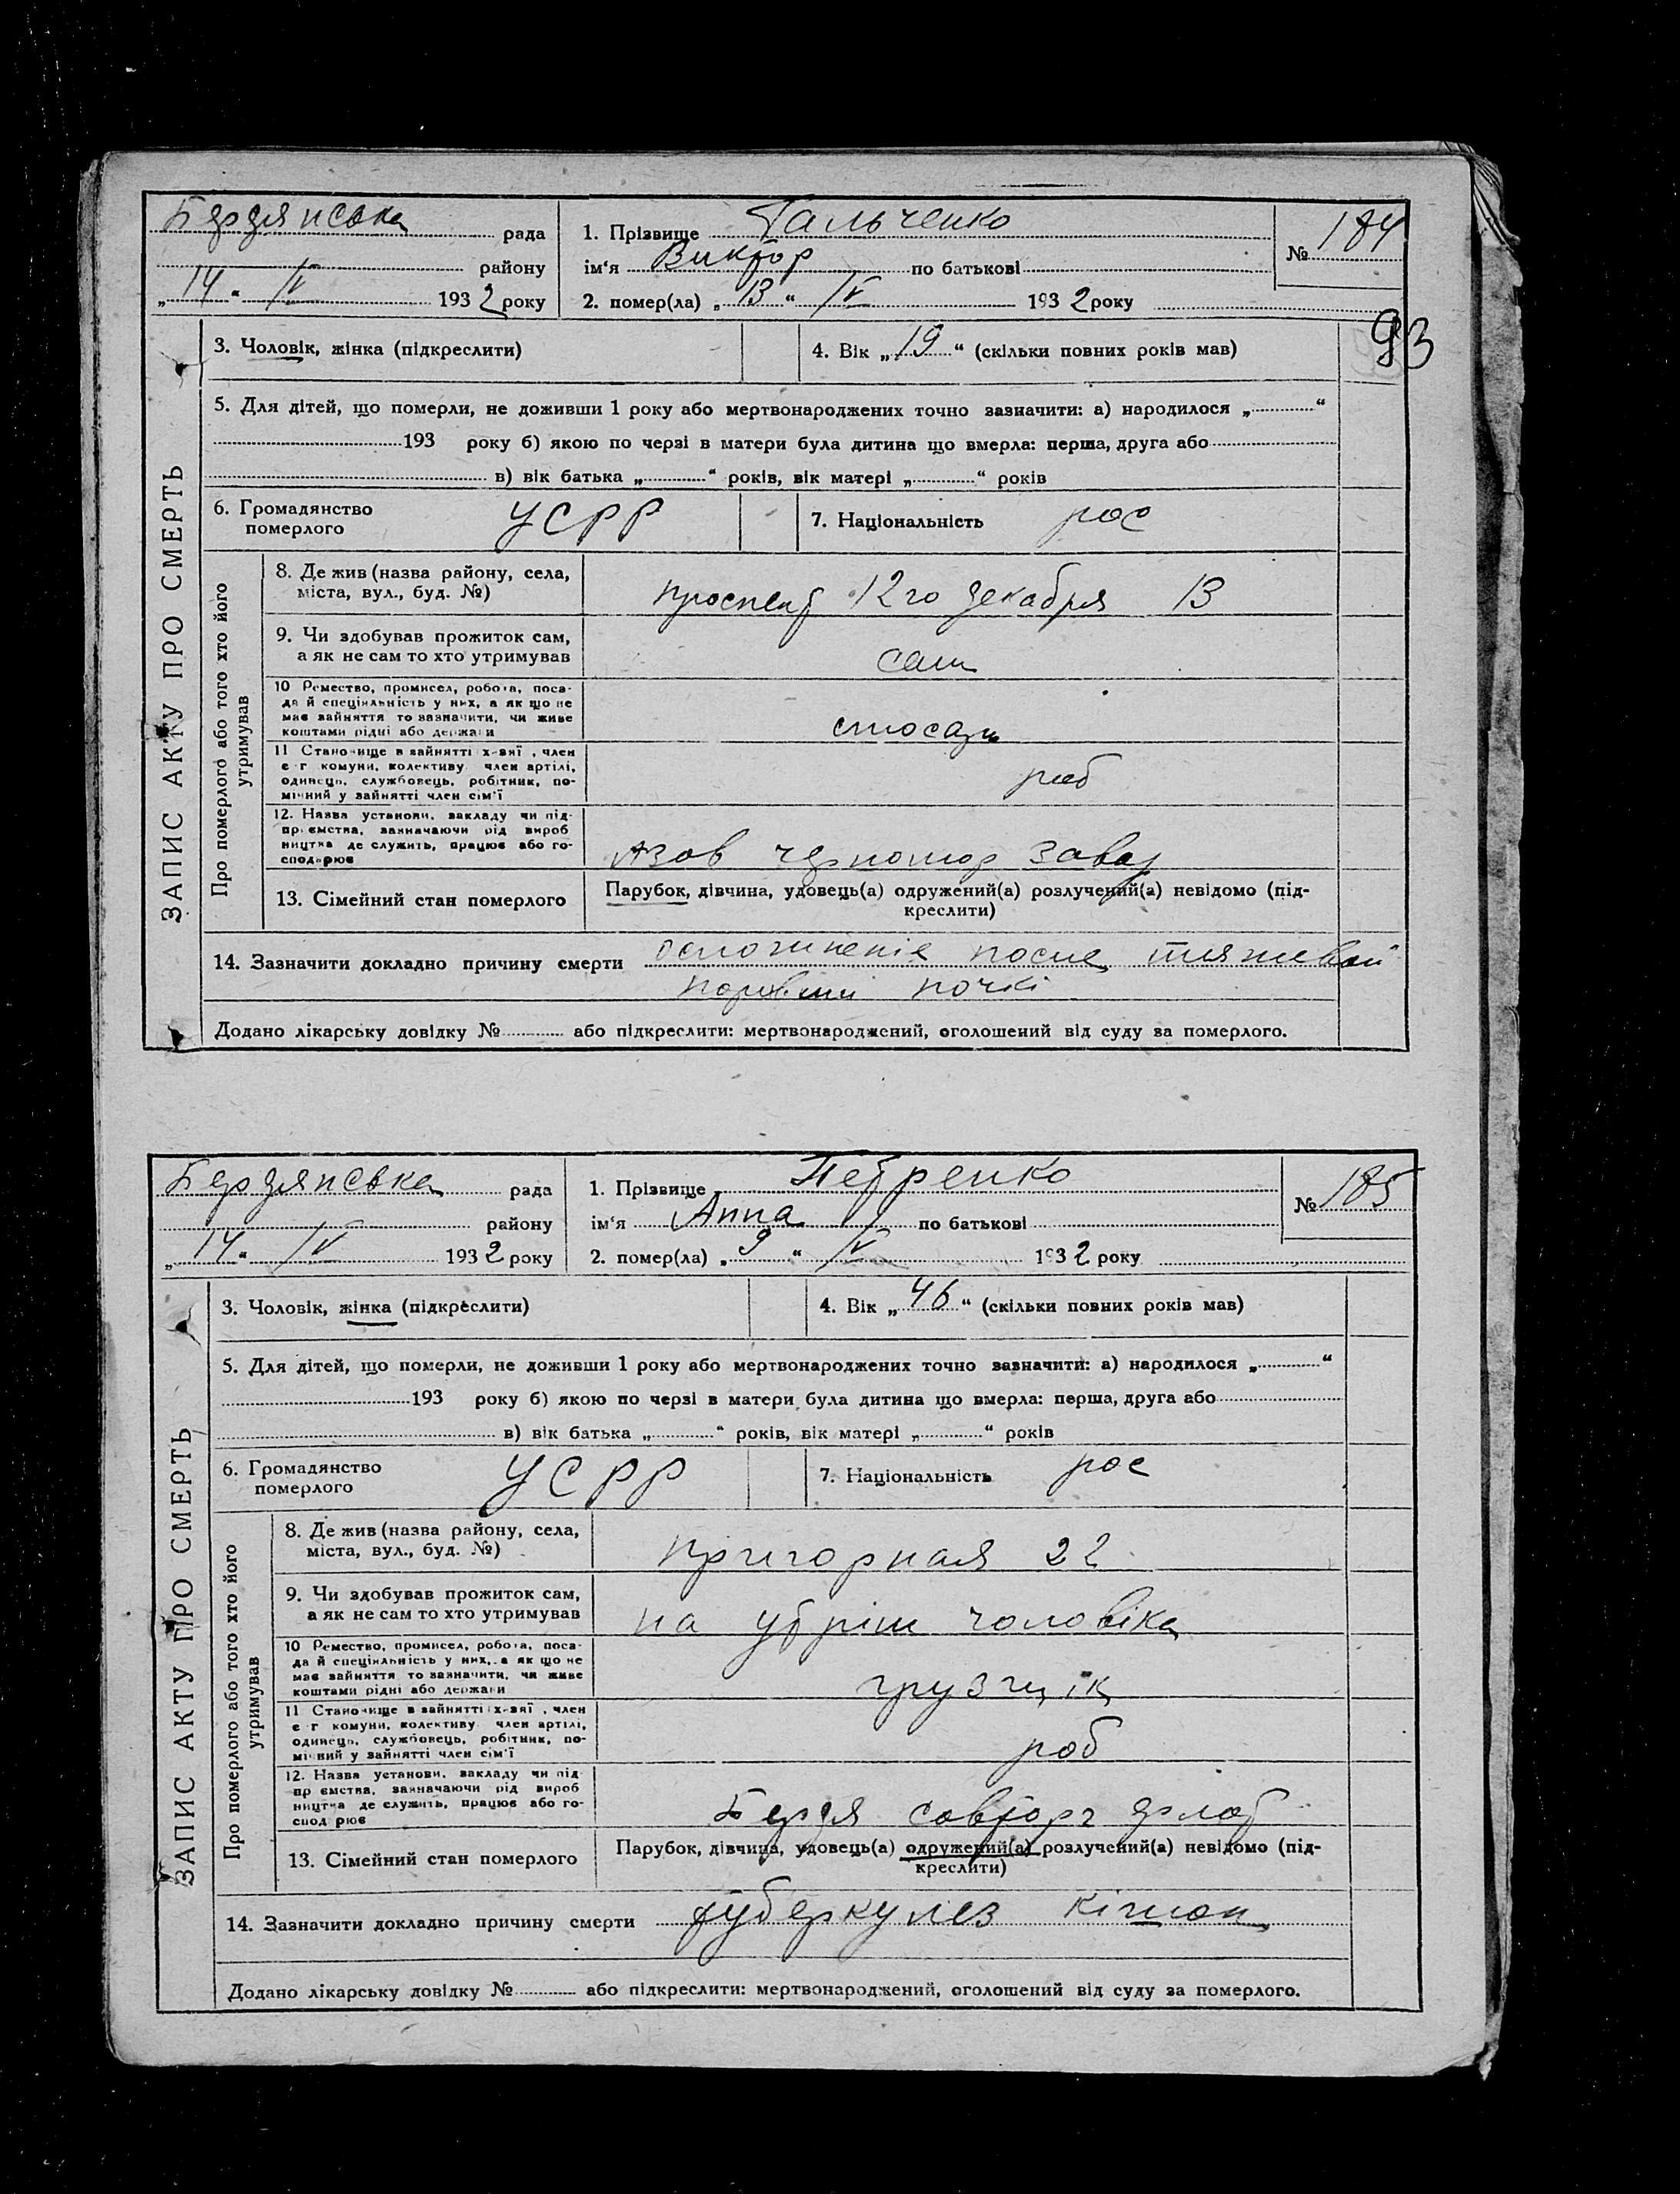 Бердянська рада
району
„14“ IV 1932 року
1. Прізвище Гальченко
ім‘я Виктор по батькові
2. помер(ла) „13“ IV 1932 року
№ 184
93
ЗАПИС АКТУ ПРО СМЕРТЬ
3. Чоловік, жінка (підкреслити)
4. Вік „19“ (скільки повних років мав)
5. Для дітей, що померли, не доживши 1 року або мертвонароджених точно зазначити: а) народилося „ “
193 року б) якою по черзі в матери була дитина що вмерла: перша, друга або
в) вік батька „ “ років, вік матері „ “ років
6. Громадянство померлого УСРР
7. Національність рос
Про померлого або того хто його утримував
8. Де жив (назва району, села,
міста, вул., буд. №)
проспект 12го декабря 13
9. Чи здобував прожиток сам,
а як не сам то хто утримував
сам
10 Ремество, промисел, робота, поса-
да й спеціяльність у них, а як що не
має зайняття то зазначити, чи живе
коштами рідні або держави
слюсарь
11 Становище в зайнятті х-вяї, член
с г комуни, колективу член артілі,
одинець, службовець, робітник, по-
мічний у зайнятті член сім'ї
роб
12. Назва установи, закладу чи під-
приємства, зазначаючи рід вироб
ництва де служить, працює або го-
сподарює
Азов черномор завод
13. Сімейний стан померлого
Парубок, дівчина, удовець(а) одружений(а) розлучений(а) невідомо (під-
креслити)
14. Зазначити докладно причину смерти осложненіе после тяжелой
почкі
Додано лікарську довідку № або підкреслити: мертвонароджений, оголошений від суду за померлого.
Бердянська рада
району
„14“ IV 1932 року
1. Прізвище Петренко
ім‘я Анна по батькові
2. помер(ла) „9“ IV 1932 року
№ 185
ЗАПИС АКТУ ПРО СМЕРТЬ
3. Чоловік, жінка (підкреслити)
4. Вік „46“ (скільки повних років мав)
5. Для дітей, що померли, не доживши 1 року або мертвонароджених точно зазначити: а) народилося „ “
193 року б) якою по черзі в матери була дитина що вмерла: перша, друга або
в) вік батька „ “ років, вік матері „ “ років
6. Громадянство померлого УСРР
7. Національність рос
Про померлого або того хто його утримував
8. Де жив (назва району, села,
міста, вул., буд. №)
пригорная 22
9. Чи здобував прожиток сам,
а як не сам то хто утримував
на утрім чоловіка
10 Ремество, промисел, робота, поса-
да й спеціяльність у них, а як що не
має зайняття то зазначити, чи живе
коштами рідні або держави
грузчік
11 Становище в зайнятті х-вяї, член
с г комуни, колективу член артілі,
одинець, службовець, робітник, по-
мічний у зайнятті член сім'ї
роб
12. Назва установи, закладу чи під
приємства, зазначаючи рід вироб
ництва де служить, працює або го-
сподарює
Бердя совторг
13. Сімейний стан померлого
Парубок, дівчина, удовець(а) одружений(а) розлучений(а) невідомо (під-
креслити)
14. Зазначити докладно причину смерти туберкулез
Додано лікарську довідку № або підкреслити: мертвонароджений, оголошений від суду за померлого.